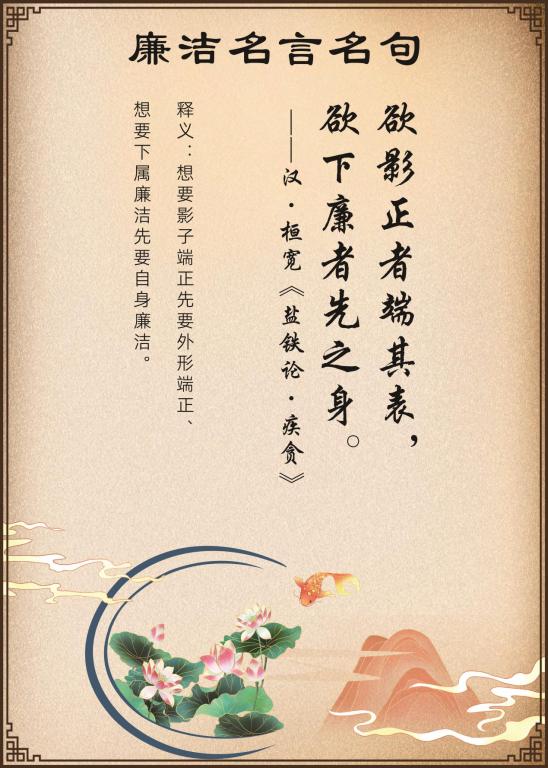 廉洁名言名句
欲影正者端其表，
欲下廉者先之身。
——汉·桓宽《盐铁论·疾贪》
释义：想要影子端正先要外形端正、
想要下属廉洁先要自身廉洁。